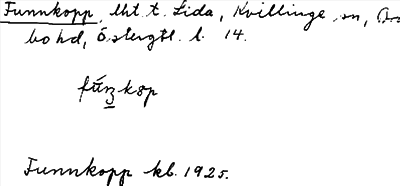 Funnkopp, lht t. Lida, Kvillinge sn,
bo hd, Östergtl. l. 14.
fúnkop
Funnkopp kb. 1925.